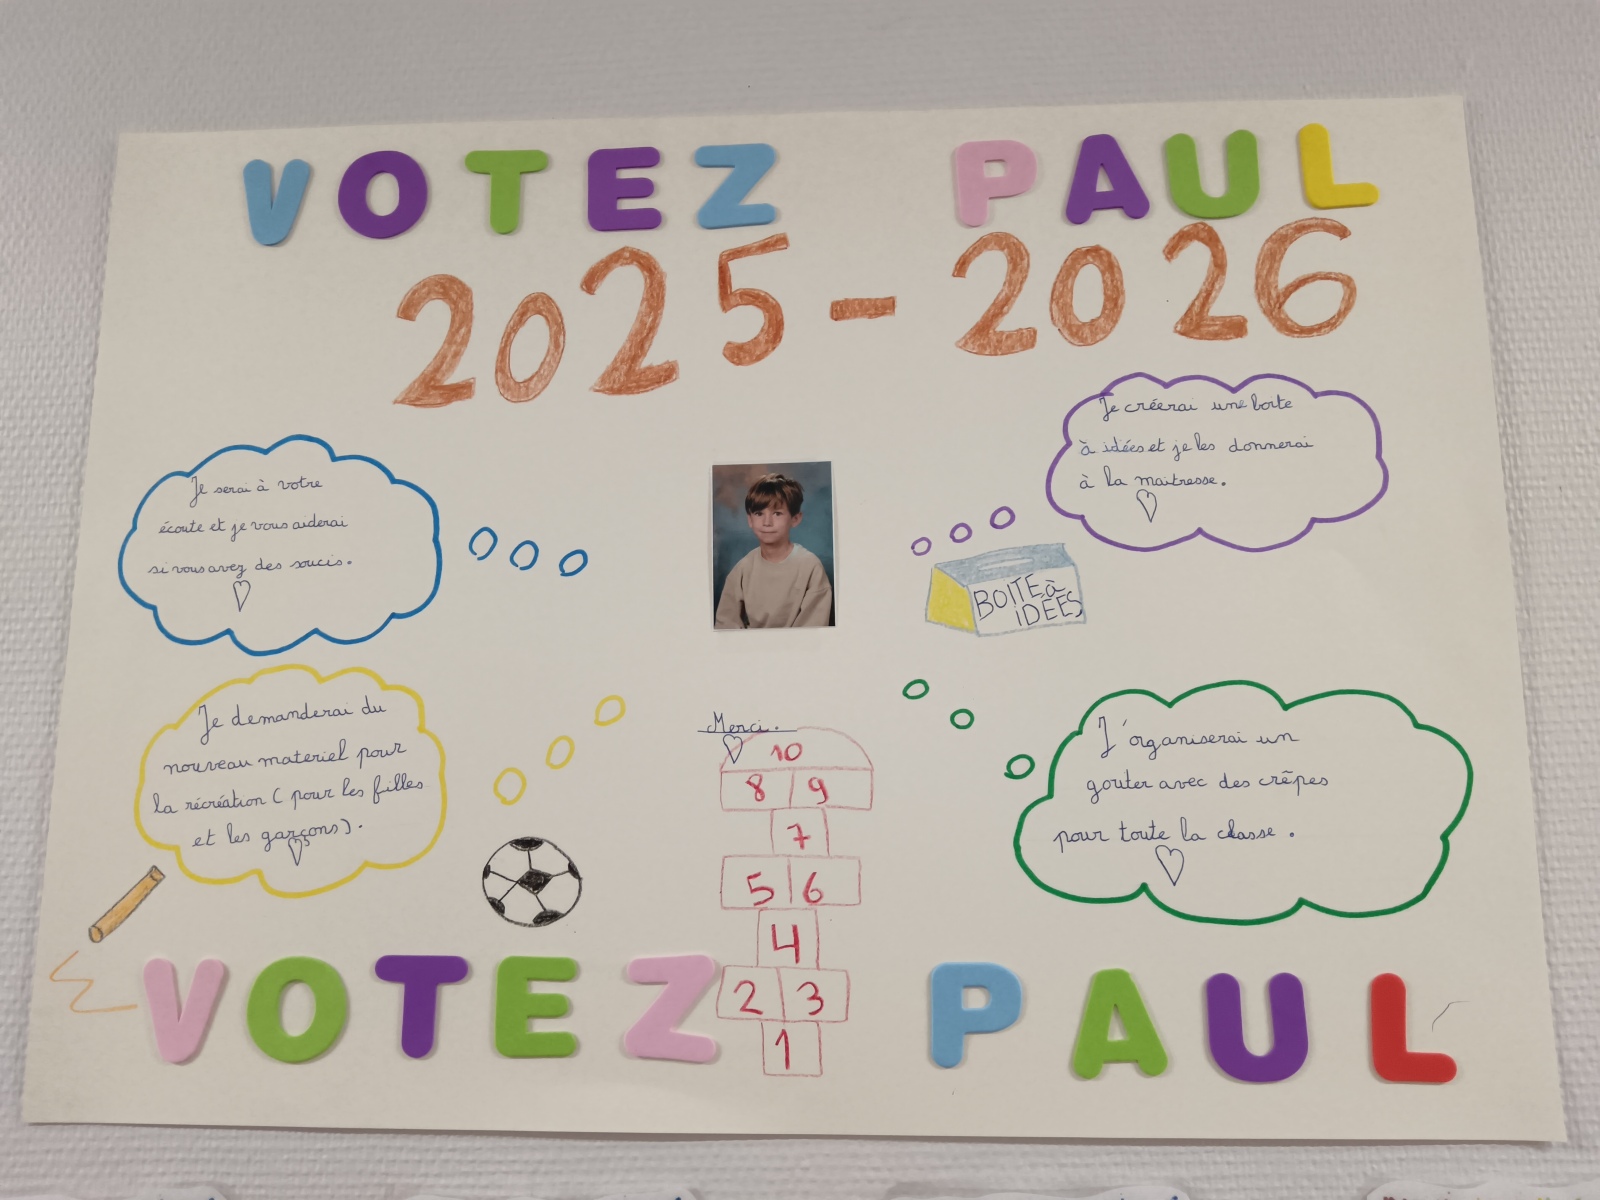 VOTEZ PAUL
2025-2026
Je serai à votre
écoute et je vous aiderai
si vous avez des soucis.
Je créerai une boite
à idées et je les donnerai
à la maitresse.
BOITE à
IDÉES
Je demanderai du
nouveau materiel pour
la récréation ( pour les filles
et les garçons).
Merci.
10
8 9
7
5 6
4
2 3
1
J'organiserai un
gouter avec des crêpes
pour toute la classe.
VOTEZ PAUL